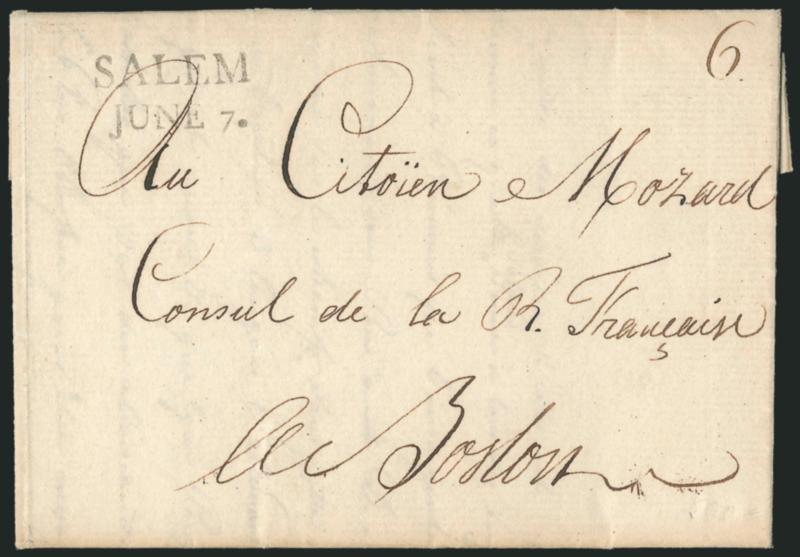 6
SALEM
JUNE 7.
Au Citoïen Mozard
Consul de la R. Française
A Boston